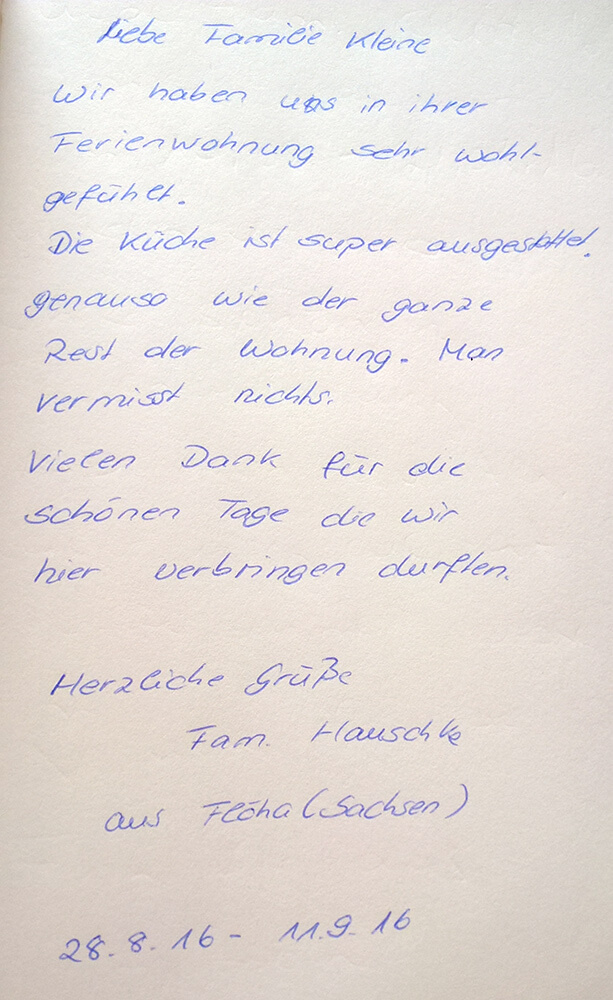 Liebe Familie Kleine
Wir haben uns in ihrer
Ferienwohnung sehr wohl-
gefühlt.
Die Küche ist super ausgestattet.
genauso wie der ganze
Rest der Wohnung. Man
vermisst nichts.
Vielen Dank für die
schönen Tage die wir
hier verbringen durften.
Herzliche Grüße
Fam. Hauschke
aus Flöha (Sachsen)
28.8.16 - 11.9.16